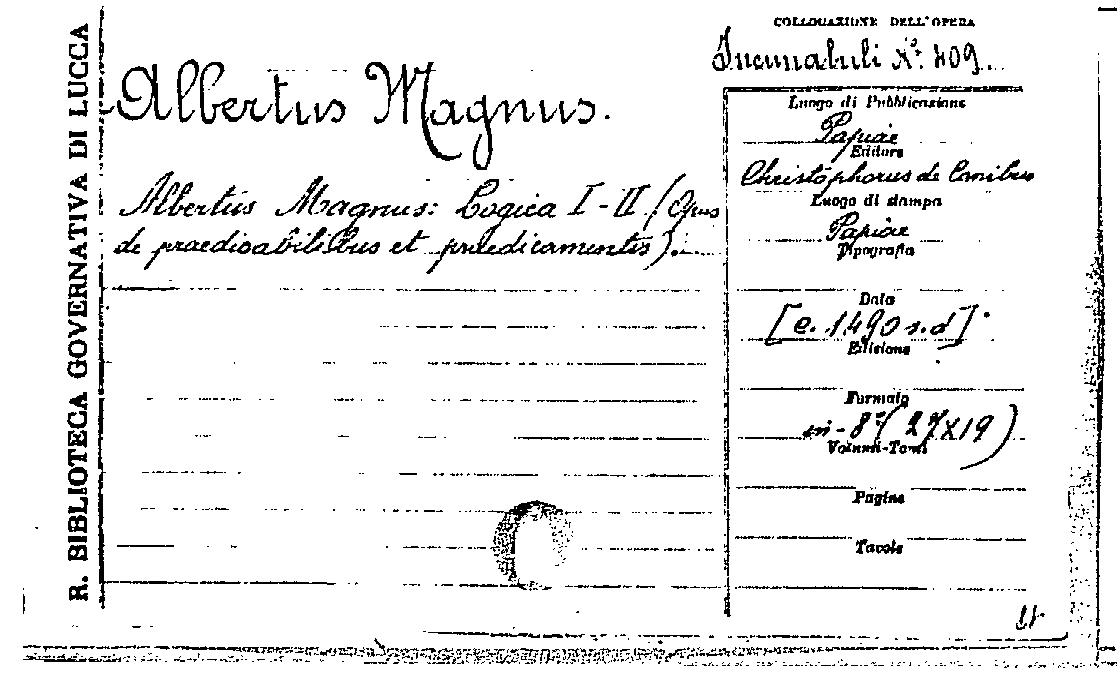 R. BIBLIOTECA GOVERNATIVA DI LUCCA
COLLOCAZIONE DELL'OPERA
Incunabuli N° 409.
Albertus Magnus.
Albertus Magnus: Logica I-II (Opus
de praedicabilibus et praedicamentis).
Luogo di Pubblicazione
Papiae
Editore
Christophorus de Canibus
Luogo di stampa
Papiae
Tipografia
Data
[c. 1490 s.d]
Edizione
Formato
in-8° (27X19)
Volumi-Tomi
Pagine
Tavole